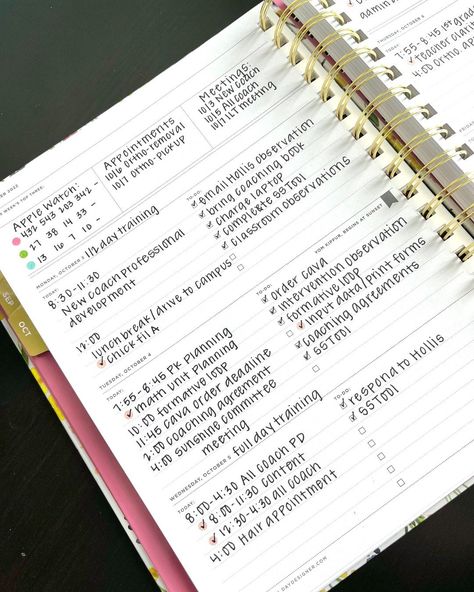 BER 2022
WEEK'S TOP THREE:
Apple Watch:
432 543 203 342
27 38 14 33 -
13 16 7 10 -
Appointments
10/6 Ortho-removal
10/7 Ortho-Pickup
Meetings:
10/3 New Coach
10/5 All Coach
10/7 ILT meeting
MONDAY, OCTOBER 3
1/2 day training
TODAY:
8:30-11:30
New Coach Professional
development
12:00
lunch break/drive to campus
Chick fil A
TO-DO:
email Hollis observation
bring coaching book
charge laptop
complete SSTOD1
classroom observations
TUESDAY, OCTOBER 4
YOM KIPPUR, BEGINS AT SUNSET
TODAY:
7:55-8:45 PK Planning
math unit Planning
10:00 formative loop
11:45 Cava order deadline
2:00 Coaching agreement
4:00 Sunshine Committee
meeting
TO-DO:
order Cava
Intervention Observation
formative loop
Input data/Print forms
Coaching agreements
SSTOD1
WEDNESDAY, OCTOBER 5
Full day training
TODAY:
8:00-4:30 All Coach PD
8:00-11:30 Content
12:30-4:30 All Coach
4:00 Hair appointment
TO-DO:
respond to Hollis
SSTOD1
DAYDESIGNER.COM
SEP
OCT
THURSDAY, OCTOBER 6
TODAY:
7:55-8:45 1st grad
Teacher clarit
4:00 Ortho. app